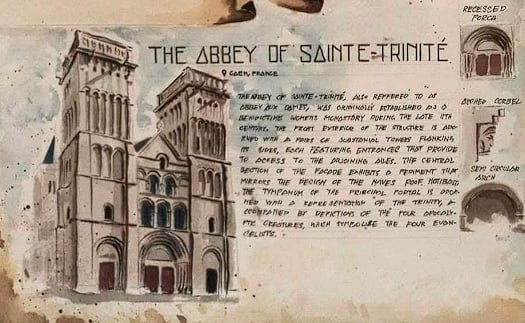 THE ABBEY OF SAINTE-TRINITÉ
CAEN, FRANCE
THE ABBEY OF SAINTE-TRINITÉ, ALSO REFFERED TO AS
ABBEY AUX DAMES, WAS ORIGINALLY ESTABLISHED AS A
BENEDICTINE WOMENS MONASTARY DURING THE LATE 11TH
CENTURY. THE FRONT EXTERIOR OF THE STRUCTURE IS ADO-
RNED WITH A PAIRS OF SUBSTANIAL TOWERS FLANKING
ITS SIDES, EACH FEATURING ENTRANCES THAT PROVIDE
TO ACCESS TO THE ADJOINING AISLES. THE CENTRAL
SECTION OF THE FACADE EXHIBITS A PEDIMENT THAT
MIRRORS THE DESIGN OF THE NAVES ROOF.
THE TYMPANUM OF THE PRINCIPAL PORTAL IS ADOR-
NED WITH A REPRESENTATION OF THE TRINITY, A-
CCOMPANIED BY DEPICTIONS OF THE FOUR APOCALY-
PTIC CREATURES, WHICH SYMBOLIZE THE FOUR EVAN-
GELISTS.
RECESSED
PORCH
ARCHED CORBEL
SEMI CIRCULAR
ARCH